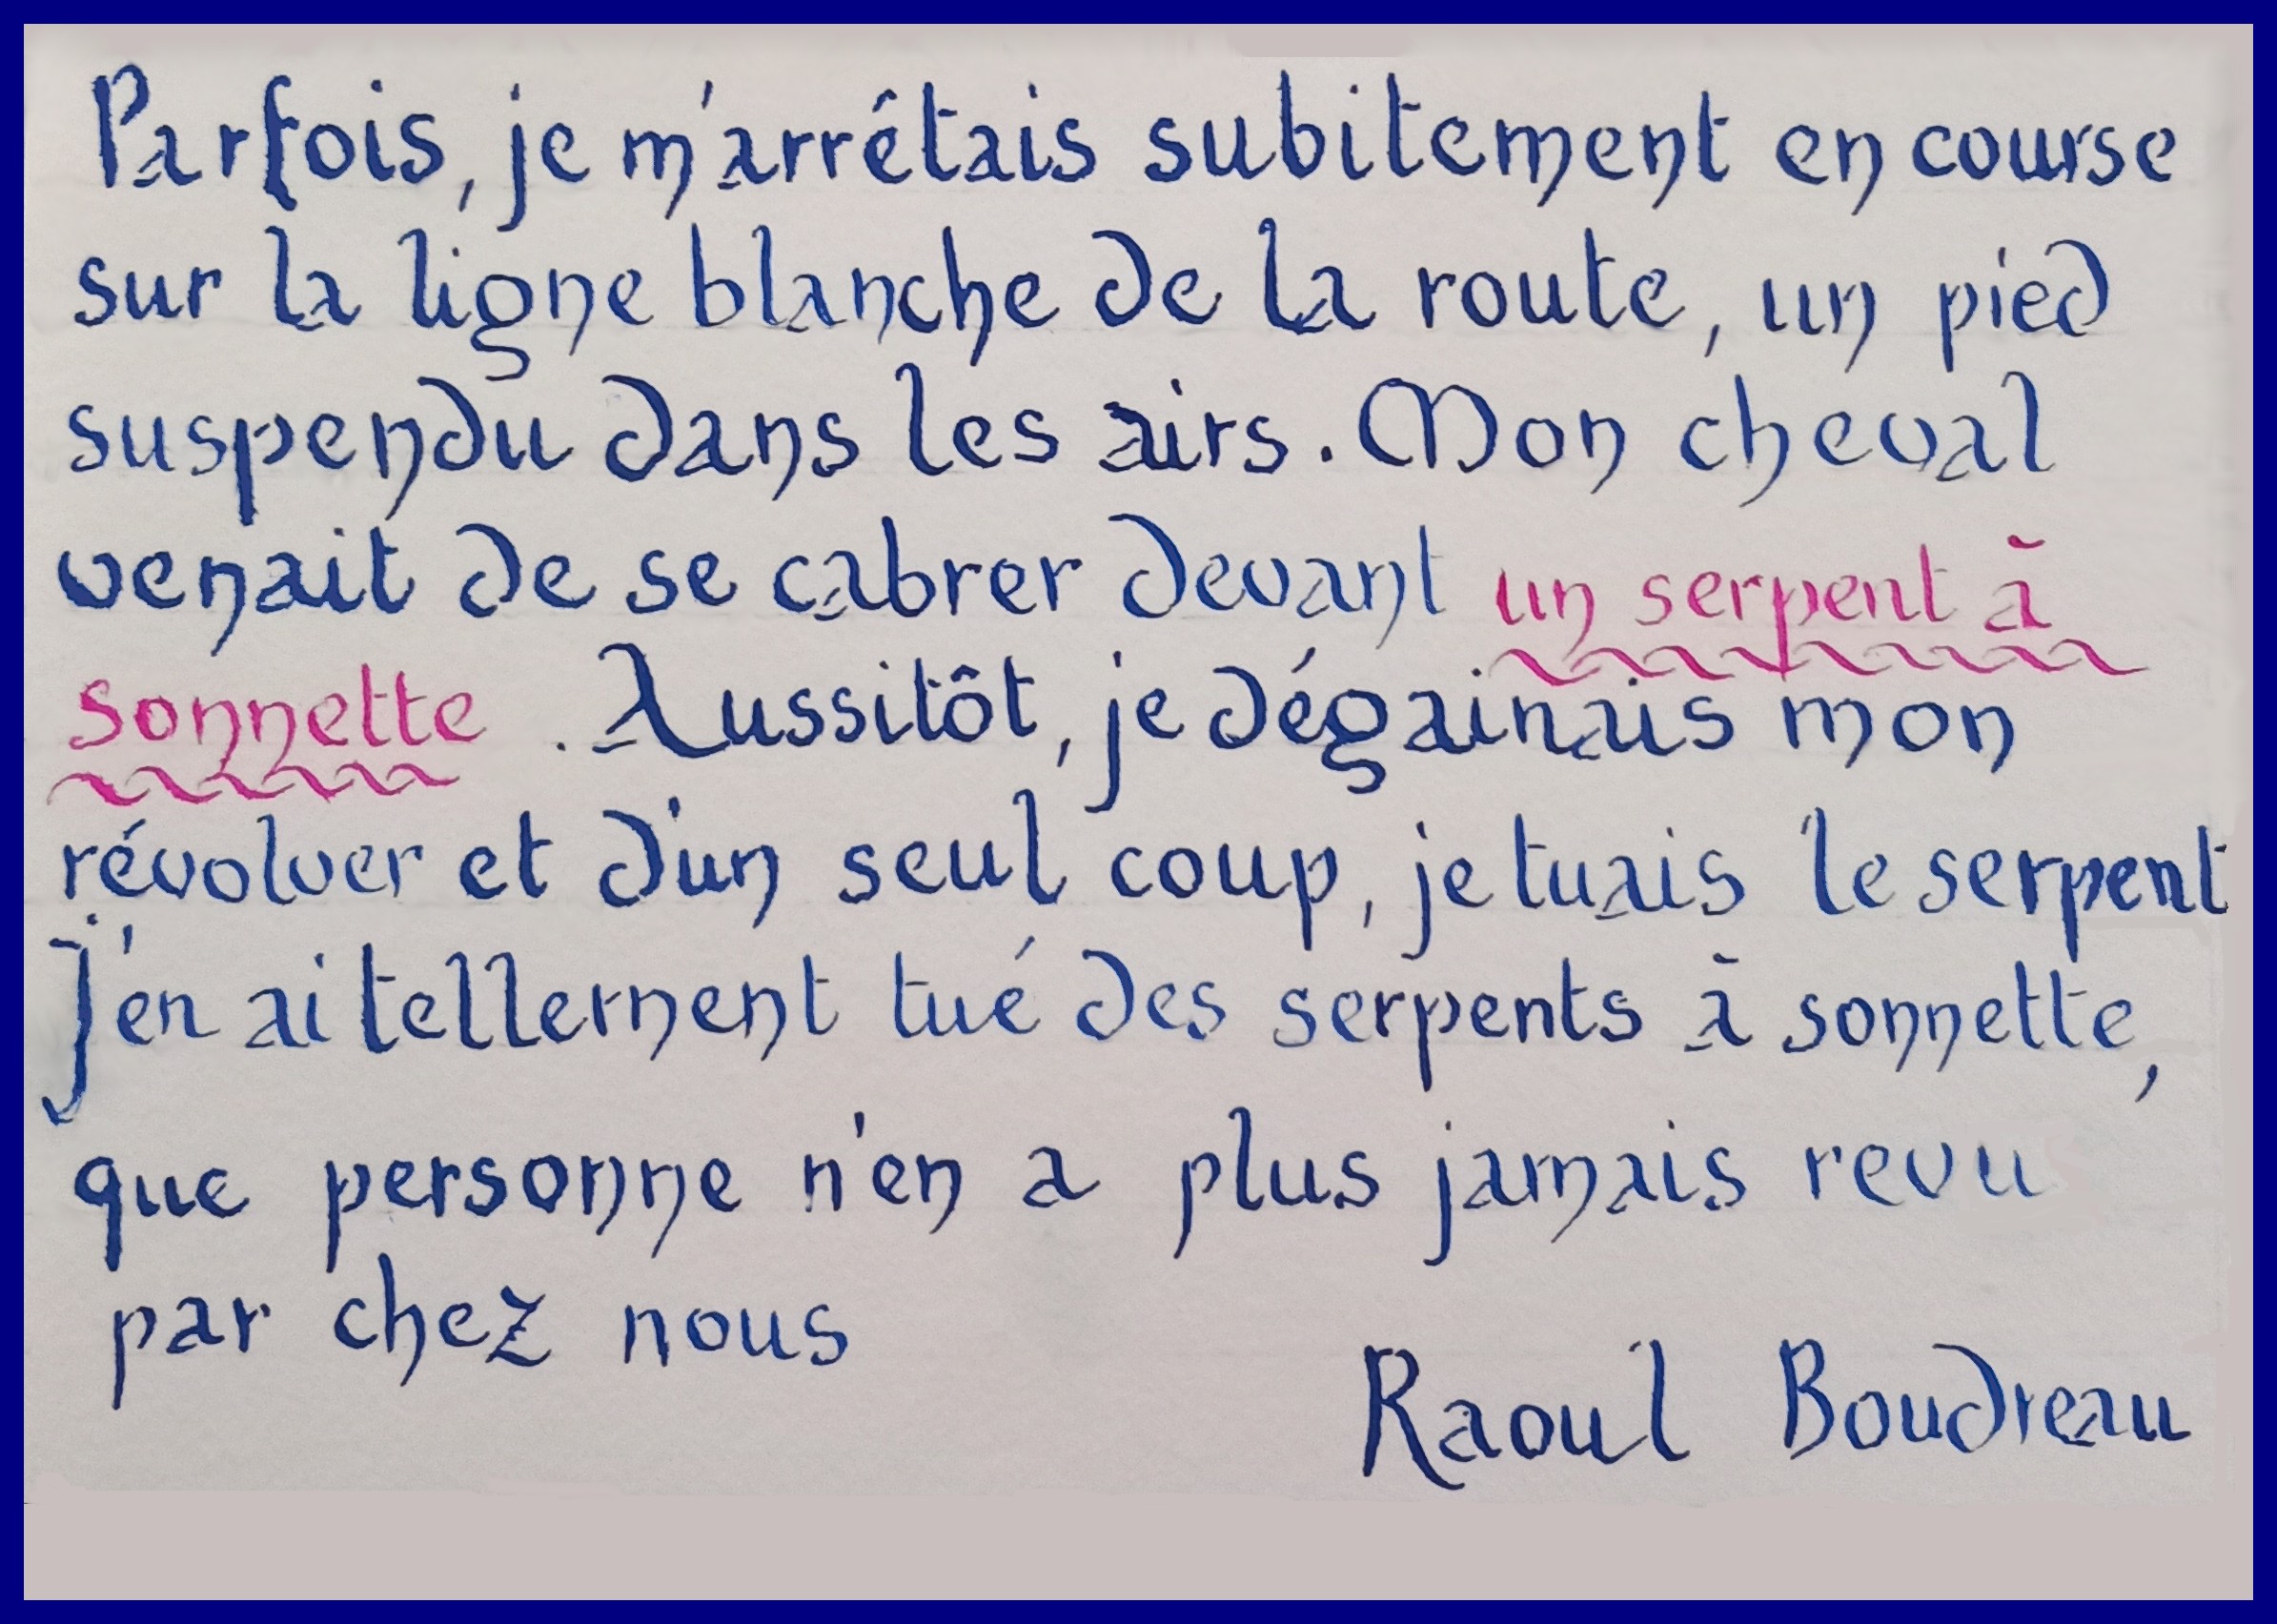 Parfois, je m'arrêtais subitement en course
sur la ligne blanche de la route, un pied
suspendu dans les airs. Mon cheval
venait de se cabrer devant un serpent à
sonnette. Aussitôt, je dégainais mon
révolver et d'un seul coup, je tuais le serpent
J'en ai tellement tué des serpents à sonnette,
que personne n'en a plus jamais revu
par chez nous
Raoul Boudreau